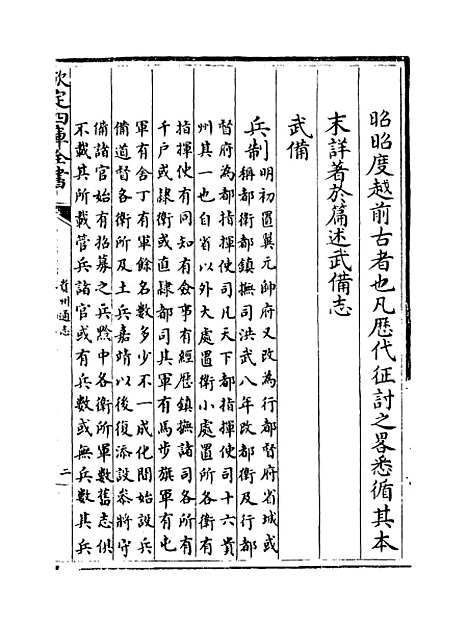 昭昭度越前古者也凡歴代征討之畧悉循其本
末詳著於篇述武備志
武備
兵制
明初置翼元帥府又改為行都督府省城或
稱都衛都鎮撫司洪武八年改都衛及行都
督府為都指揮使司凡天下都指揮使司十六貴
州其一也自省以外大處置衛小處置所各衛有
指揮使有同知有僉事有經歴鎮撫諸司各所有
千户或隷衛或直隷都司其軍有馬步旗軍有屯
軍有舍丁有軍餘名數多少不一成化間始設兵
備道督各衛所及土兵嘉靖以後復添設叅將守
備諸官始有招募之兵黔中各衛所軍數舊志俱
不載其所載營兵諸官或有兵數或無兵數其兵
欽定四庫全書
貴州通志
二